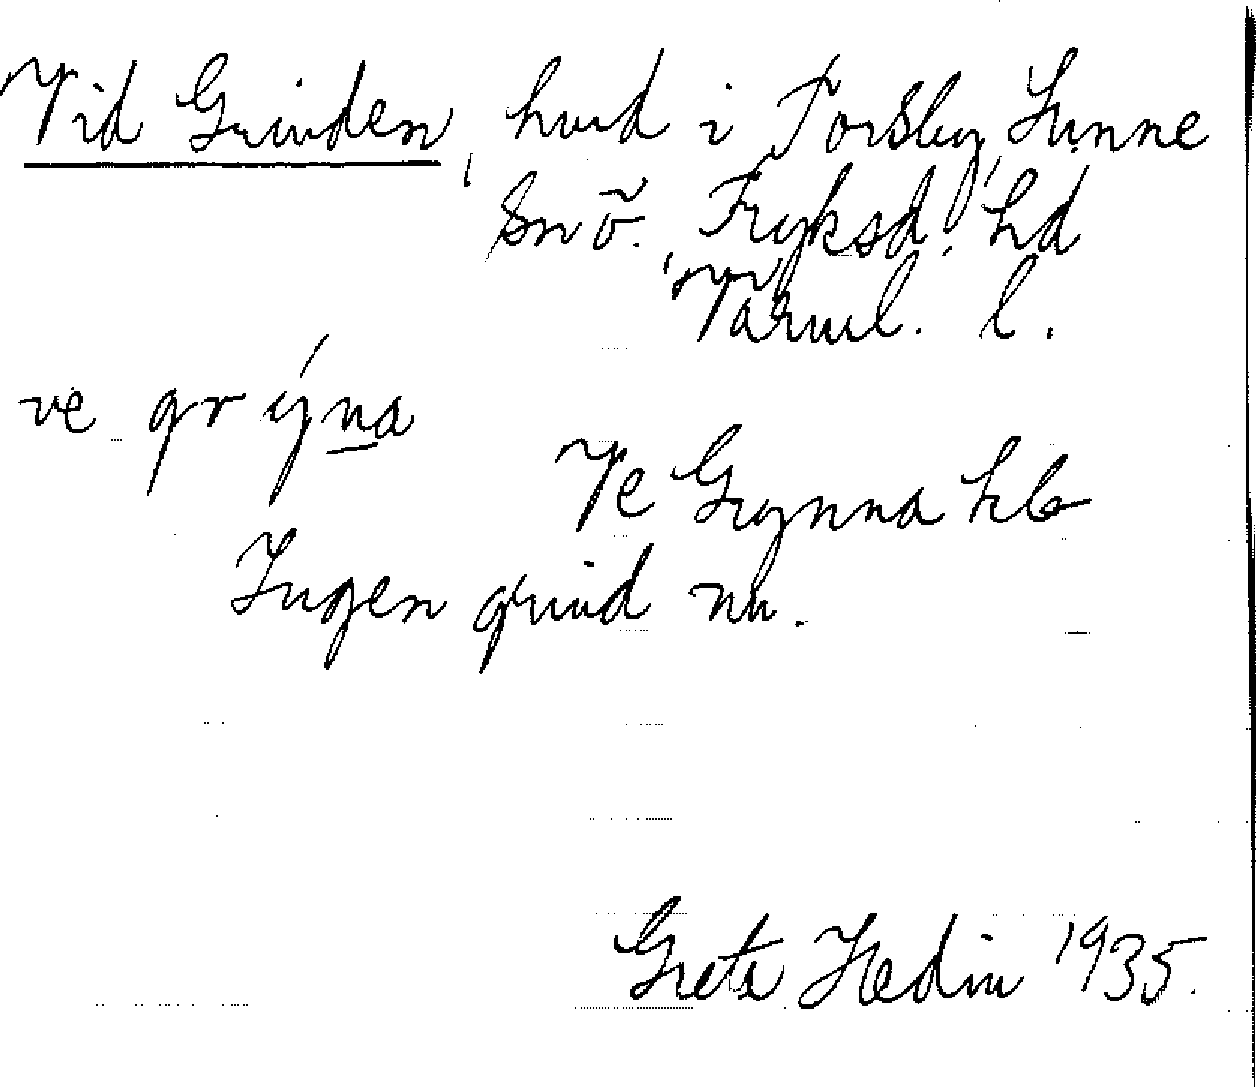 Vid Grinden, hmd i Torsby, Sunne
sn ö. Fryksd. hd
Värml. l.
ve grýna
Ve Grynna hb
Ingen grind nu.
Greta Hedin 1935.